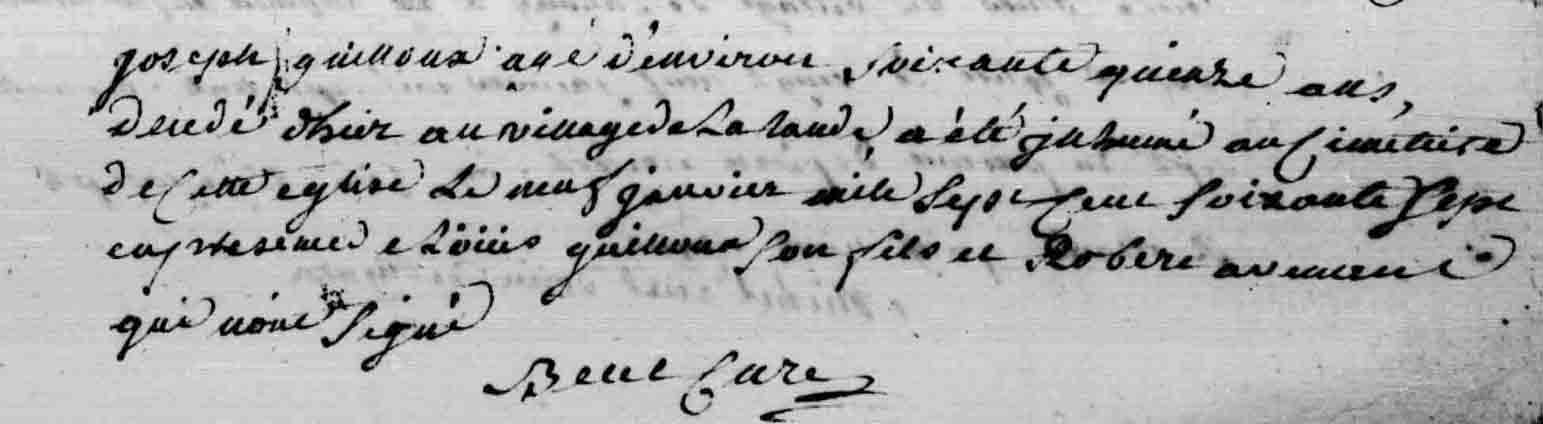 joseph guilloux agé d'environ soixante quinze ans,
decedé d'hier au village de La lande, a été jnhumé au Cimetiere
de Cette eglise Le neuf janvier mile Sept Cent Soixante Sept
en presence de Loüis guilloux son fils et Robert
qui n'ont Signé
Curé